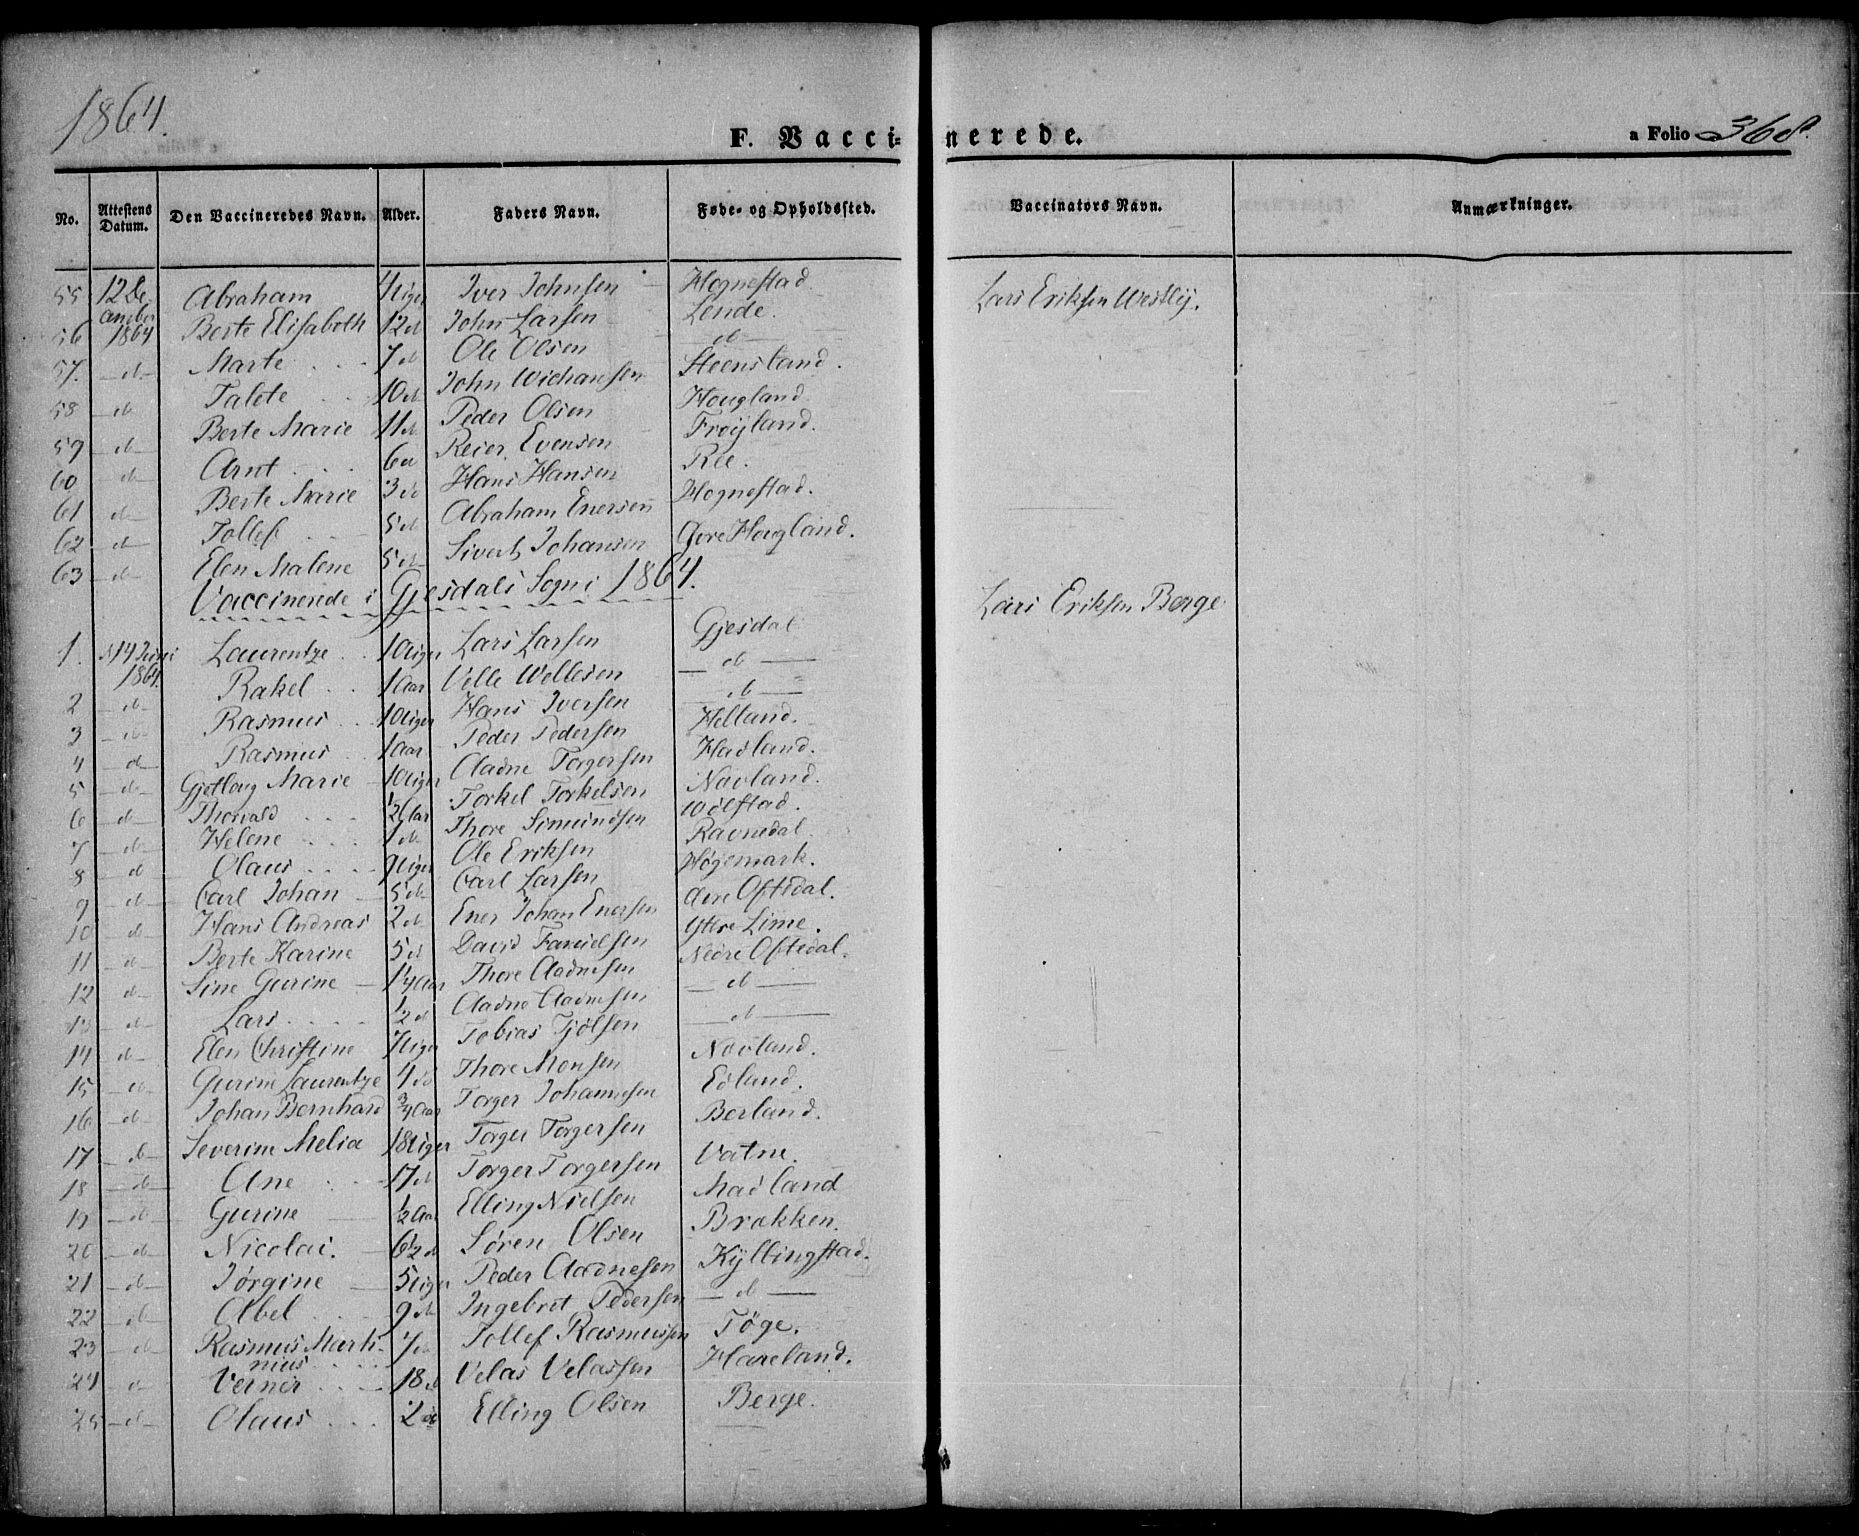 1864.
F. Vaccinerede.
a Folio 368.
No. Attestens Datum. Den Vaccineredes Navn. Alder. Faders Navn. Føde- og Opholdssted. Vaccinators Navn. Anmærkninger.
55 12 De Abraham 4 Uger Iver Johnsen Hognestad Lars Eriksen Westlÿ.
56 1864 Berte Elisabeth 12 d John Larsen Lende.
57. d Marte 7 d Ole Olsen d
58 d Talete 10 d John Wichansen Steensland.
59 d Berte Marie 11 d Peder Olsen Hougland
60 d Arnt 6 d Reier Evensen Frøÿland.
61 d Berte Marie 3 d Hans Hansen Ree.
62 d Tollef 5 d Abraham Enersen Hognestad.
63 d Elen Malene 5 d Sivert Johansen Øvre Hougland.
Vaccinerede i Gjesdals Sogn i 1864.
Lars Eriksen Berge
1. 14 Juni 1864. Laurentze 10 Uger Lars Larsen Gjesdal
2 d Rakel 1 Aar Velle Wellesen d
3 d Rasmus 10 Uger Hans Iversen d
4 d Rasmus 1 Aar Peder Pedersen Helland.
5 d Gjetlaug Marie 10 Uger Aadne Torgersen Hadland.
6 d Thorvald 1/2 Aar Torkel Torkelsen Navland.
7 d Helene 1 d Thore Simundsen Ølfstad.
8 d Olaus 9 Uger Ole Eriksen Ravndal
9 d Carl Johan 5 d Carl Larsen Høgemark.
10 d Hans Andreas 2 d Ener Johan Enersen Øvre Oftedal.
11 d Berte Karine 5 d David Fanuelsen Ytre Lime.
12 d Sine Gurine 1 1/4 Aar Thore Aadnesen Nedre Oftedal.
13 d Lars 1/2 d Aadne Aadnesen d
14 d Elen Christine 7 Uger Tobias Tjølsen d
15 d Gurine Laurentze 4 d Thore Monsen Navland.
16 d Johan Bernhard 3/4 Aar Torger Johannesen Edland.
17 d Severine Melia 18 Uger Torger Torgersen Berland.
18 d Ane 17 d Torger Torgersen Vatne.
19 d Gurine 1/2 Aar Elling Nielsen Madland
20 d Nicolai. 6 1/2 d Søren Olsen Brækken.
21 d Jørgine 5 Uger Peder Aadnesen Kÿllingstad.
22 d Abel 9 d Ingebret Pedersen d
23 d Rasmus Marti- 7 d Tollef Rasmussen Tøge.
nius
24 d Verner 18 d Velas Velassen Haveland.
25 d Olaus 2 d Elling Olsen Berge.